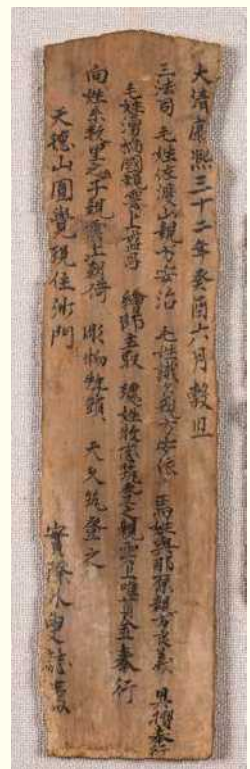 大清康熙三十二年癸酉六月穀旦
三法司 毛姓佐渡山親方安治 毛姓識名親方安依 馬姓與那原親方良義 見摺奉行
毛姓湧稲國親雲上盛昌 繪師主取 總姓牧志筑登之親雲上唯貞奉行
向姓糸数里之子親雲上朝倚 彫物牧頭 天久筑登之
天德山圓覺現住沙門